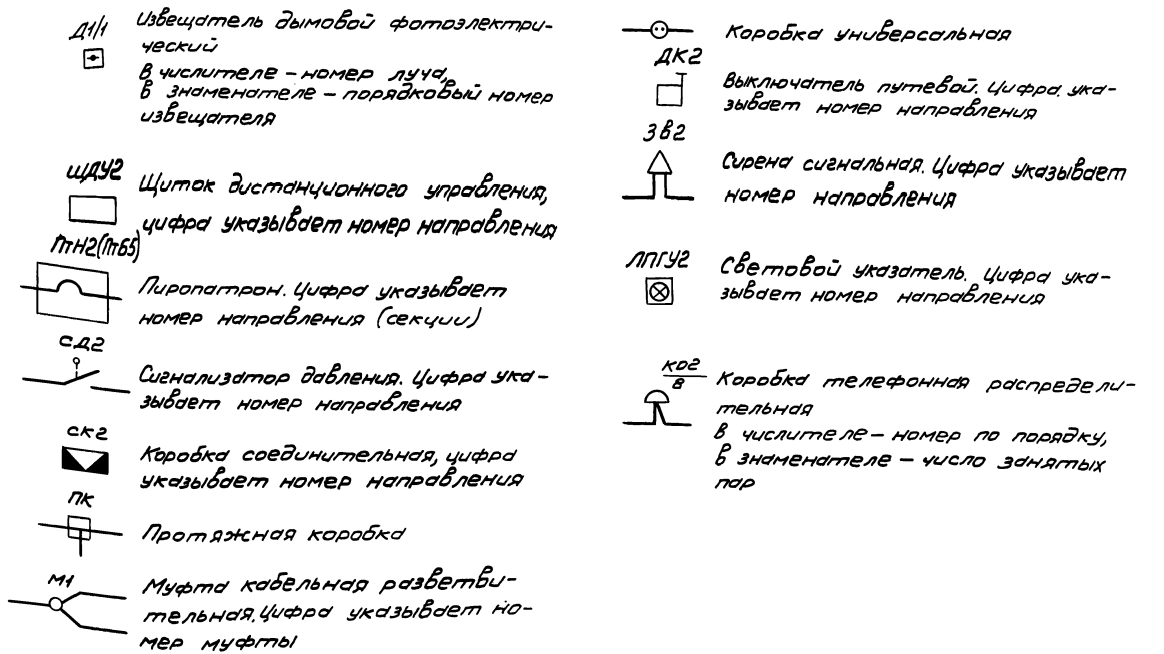 Д1/1
Извещатель дымовой фотоэлектри-
ческий
в числителе – номер луча,
в знаменателе – порядковый номер
извещателя
ЩДУ2
Щиток дистанционного управления,
цифра указывает номер направления
ПтН2(Пт65)
Пиропатрон. Цифра указывает
номер направления (секции)
СД2
Сигнализатор давления. Цифра ука-
зывает номер направления
СК2
Коробка соединительная, цифра
указывает номер направления
ПК
Протяжная коробка
М1
Муфта кабельная разветви-
тельная. Цифра указывает но-
мер муфты
Коробка универсальная
ДК2
Выключатель путевой. Цифра ука-
зывает номер направления
ЗВ2
Сирена сигнальная. Цифра указывает
номер направления
ЛПГУ2
Световой указатель. Цифра ука-
зывает номер направления
КРГ
8
Коробка телефонная распредели-
тельная
в числителе – номер по порядку,
в знаменателе – число занятых
пар